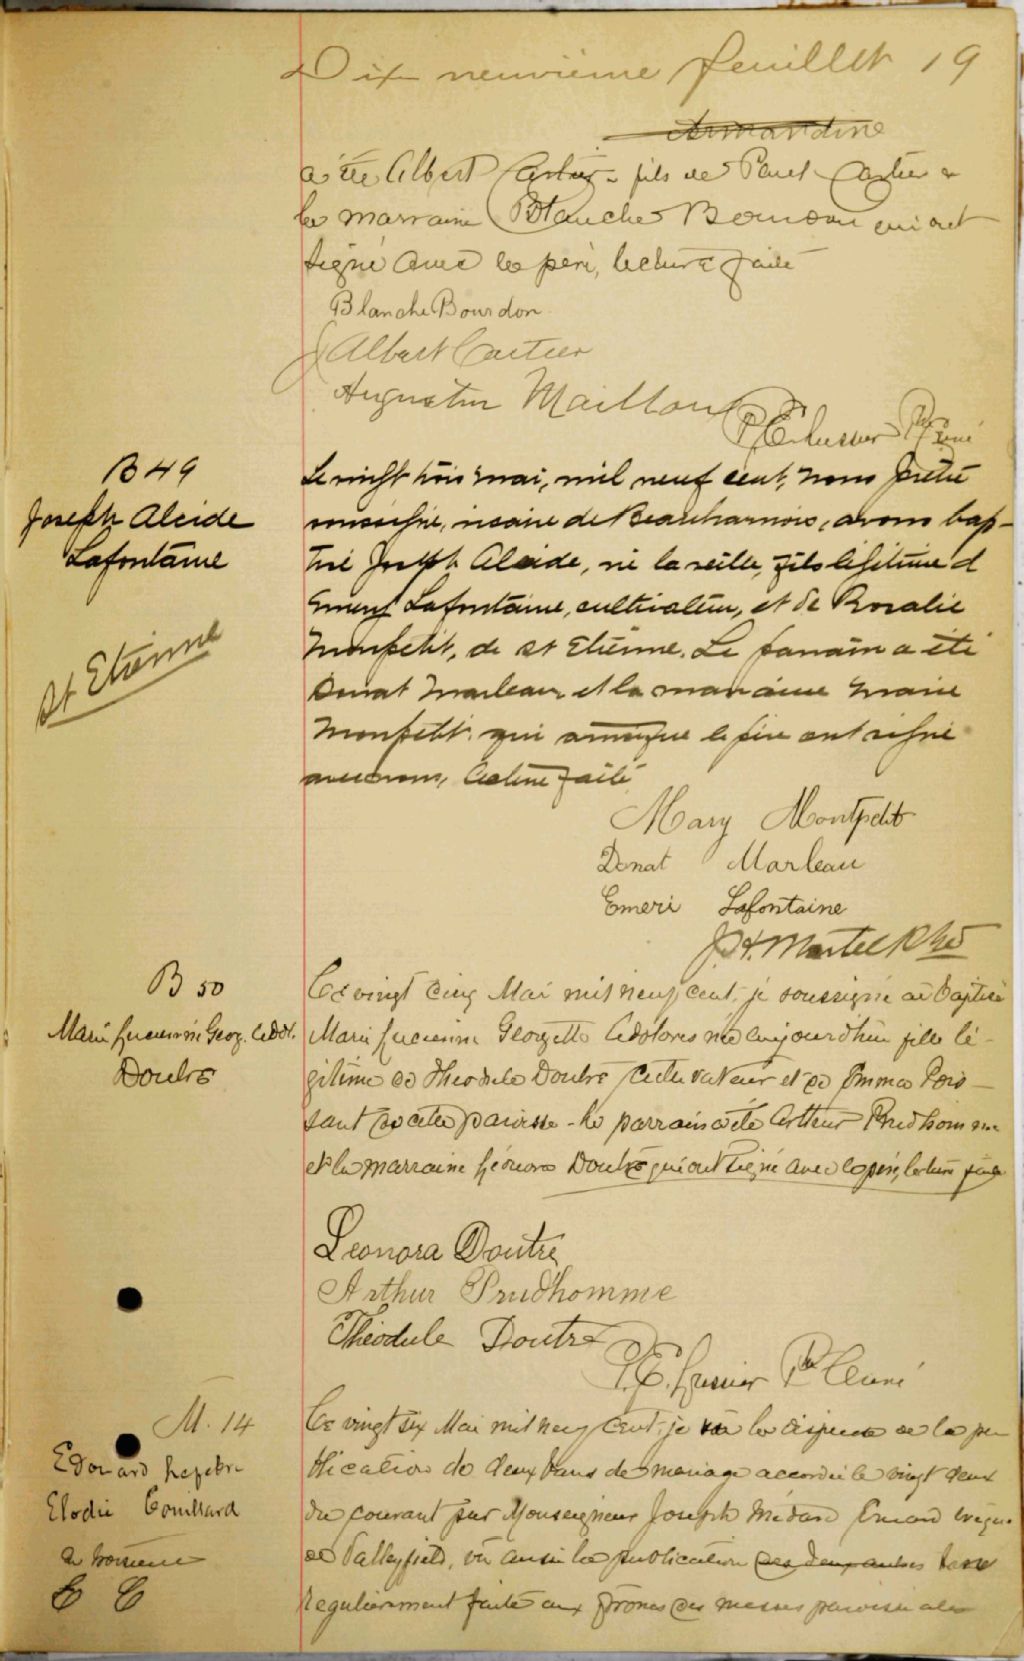 Dix neuvième feuillet 19
Armandine
a été Albert Cartier fils de Paul Cartier &
la marraine Blanche Bourdon qui ont
signé avec le père, lecture faite
Blanche Bourdon
J Albert Cartier
Augustin Mailloux
P.E. Lussier Ptre Curé
B 49
Joseph Alcide
Lafontaine
St Etienne
Le vingt trois mai, mil neuf cent, nous prêtre
soussigné, vicaire de Beauharnois, avons bap-
tisé Joseph Alcide, né la veille, fils légitime d
Emery Lafontaine, cultivateur, et de Rosalie
Monpetit, de St Etienne. Le parrain a été
Donat Marleau et la marraine Marie
Monpetit qui ainsi que le père ont signé
avec nous, lecture faite
Mary Montpetit
Donat Marleau
Emeri Lafontaine
J.H. Martel Ptre
B 50
Marie Lucienne Georg. Ledol.
Doutre
Le vingt cinq Mai mil neuf cent, je soussigné ai baptisé
Marie Lucienne Georgette Ledolores née aujourd'hui fille lé-
gitime de Théodule Doutre cultivateur et de Emma Pois-
sant de cette paroisse - le parrain a été Arthur Prudhomme
et la marraine Léonora Doutre qui ont signé avec le père, lecture faite
Leonora Doutre
Arthur Prudhomme
Théodule Doutre
P.E. Lussier Ptre Curé
M. 14
Edouard Lefebre
Elodie Couillard
E C
Le vingt six Mai mil neuf cent, je vu la dispense de la pu
blication de deux bans de mariage accordée le vingt deux
du courant par Monseigneur Joseph Médard Emard évêque
de Valleyfield, vu aussi la publication des deux autres bans
regulièrement faite aux prônes des messes paroissiales